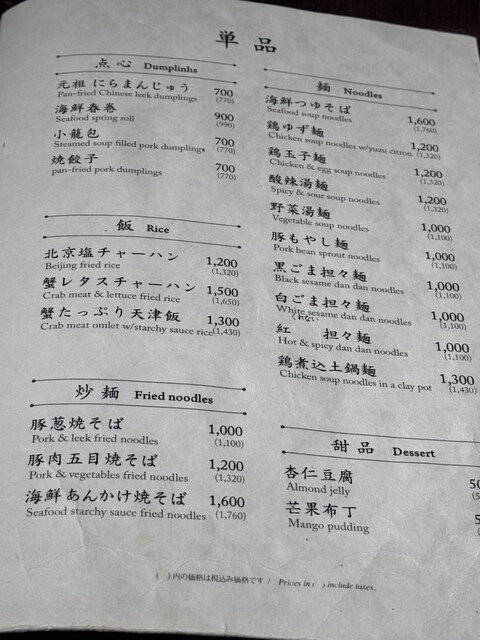 単品
点心 Dumplinhs
元祖 にらまんじゅう 700
Pan-fried Chinese leek dumplings (770)
海鮮春巻 900
Seafood spring roll (990)
小籠包 700
Steamed soup filled pork dumplings (770)
焼餃子 700
pan-fried pork dumplings (770)
飯 Rice
北京塩チャーハン 1,200
Beijing fried rice (1,320)
蟹レタスチャーハン 1,500
Crab meat & lettuce fried rice (1,650)
蟹たっぷり天津飯 1,300
Crab meat omlet w/starchy sauce rice (1,430)
炒麺 Fried noodles
豚葱焼そば 1,000
Pork & leek fried noodles (1,100)
豚肉五目焼そば 1,200
Pork & vegetables fried noodles (1,320)
海鮮あんかけ焼そば 1,600
Seafood starchy sauce fried noodles (1,760)
麺 Noodles
海鮮つゆそば 1,600
Seafood soup noodles (1,760)
鶏ゆず麺 1,200
Chicken soup noodles w/yuzu citron (1,320)
鶏玉子麺 1,200
Chicken & egg soup noodles (1,320)
酸辣湯麺 1,200
Spicy & sour soup noodles (1,320)
野菜湯麺 1,000
Vegetable soup noodles (1,100)
豚もやし麺 1,000
Pork bean sprout noodles (1,100)
黒ごま担々麺 1,000
Black sesame dan dan noodles (1,100)
白ごま担々麺 1,000
White sesame dan dan noodles (1,100)
くれない
紅 担々麺 1,000
Hot & spicy dan dan noodles (1,100)
鶏煮込土鍋麺 1,300
Chicken soup noodles in a clay pot (1,430)
甜品 Dessert
杏仁豆腐
Almond jelly
芒果布丁
Mango pudding
( )内の価格は税込み価格です / Prices in ( ) include taxes.